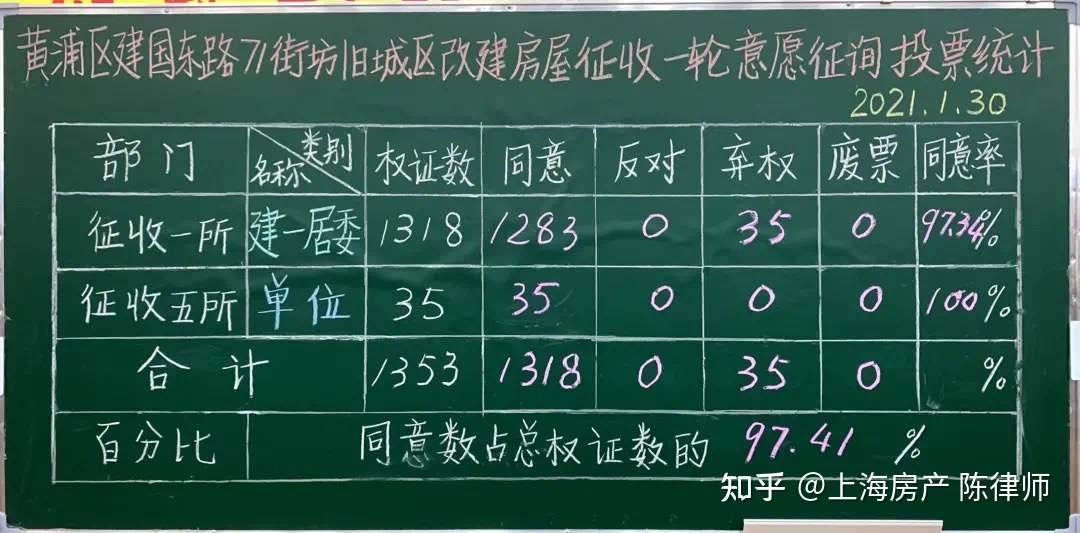 黄浦区建国东路71街坊旧城区改建房屋征收一轮意愿征询投票统计
2021.1.30
部门 类别 名称 权证数 同意 反对 弃权 废票 同意率
征收一所 建一居委 1318 1283 0 35 0 97.34%
征收五所 单位 35 35 0 0 0 100%
合计 1353 1318 0 35 0 %
百分比 同意数占总权证数的 97.41 %
知乎 @上海房产 陈律师